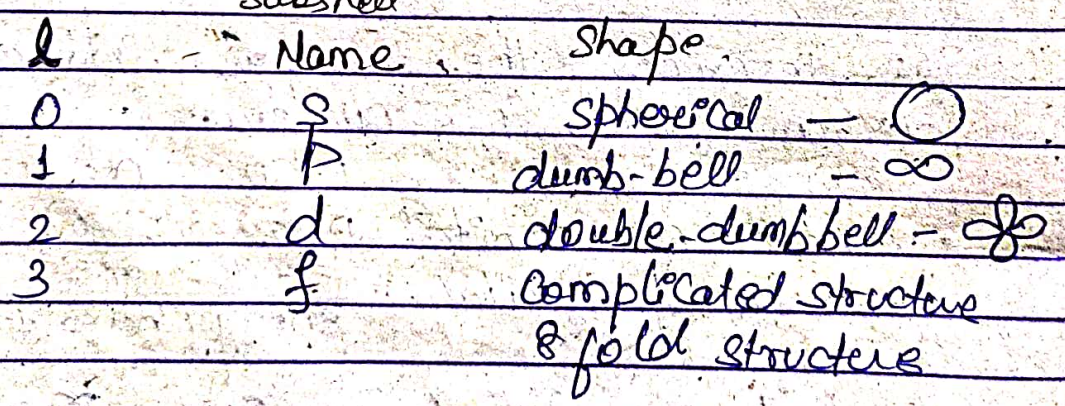 l Name Shape
0 s spherical –
1 p dumb-bell –
2 d double-dumbbell –
3 f Complicated structure
8 fold structure